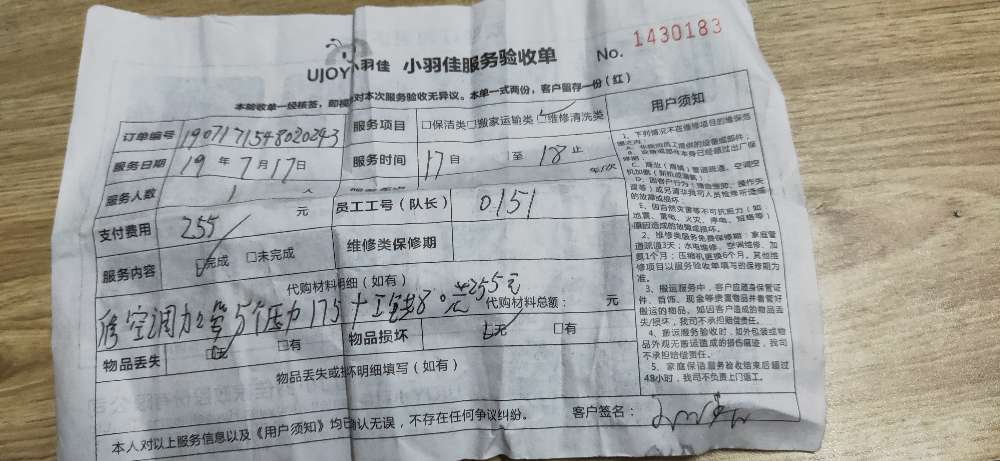 UJOY小羽佳 小羽佳服务验收单 No. 1430183
本验收单一经核签，即视对本次服务验收无异议。本单一式两份，客户留存一份（红）
订单编号 190717154802024-3 服务项目 □保洁类□搬家运输类□维修清洗类 用户须知
服务日期 19年7月17日 服务时间 17自 至18止
服务人数 1 人 年/次
支付费用 255 元 员工工号（队长） 0151
服务内容 □完成 □未完成 维修类保修期
代购材料明细（如有）
修空调加2管5个压力175+工钱80元=255元
代购材料总额： 元
物品丢失 □无 □有 物品损坏 □无 □有
物品丢失或损坏明细填写（如有）
本人对以上服务信息以及《用户须知》均已确认无误，不存在任何争议纠纷。 客户签名：
1、下列情况不在维修项目的维保范
围之内
A、非我司员工提供的设备或部件；
B、设备或部件本身已经超过出厂保
修期
C、商业（商铺）管道疏通、空调空
机加氨（新机或漏氨）
E、因自然灾害等不可抗拒力（如：
地震、雷电、火灾、停电、短路等）
原因造成的故障或损坏。
2、维修类服务免费保修期：家庭管
道疏通3天；水电维修、空调维修、加
氨1个月；压缩机更换6个月。其他维
修项目以服务验收单填写的保修期为
准。
3、搬运服务中，客户应随身保管证
件、首饰、现金等贵重物品并看管好
搬运的物品，如因客户造成的物品丢
失/损坏，我司不承担赔偿责任。
4、搬运服务验收时，如外包装或物
品外观无搬运造成的损伤痕迹，我司
不承担赔偿责任。
5、家庭保洁服务验收结束后超过
48小时，我司不负责上门返工。